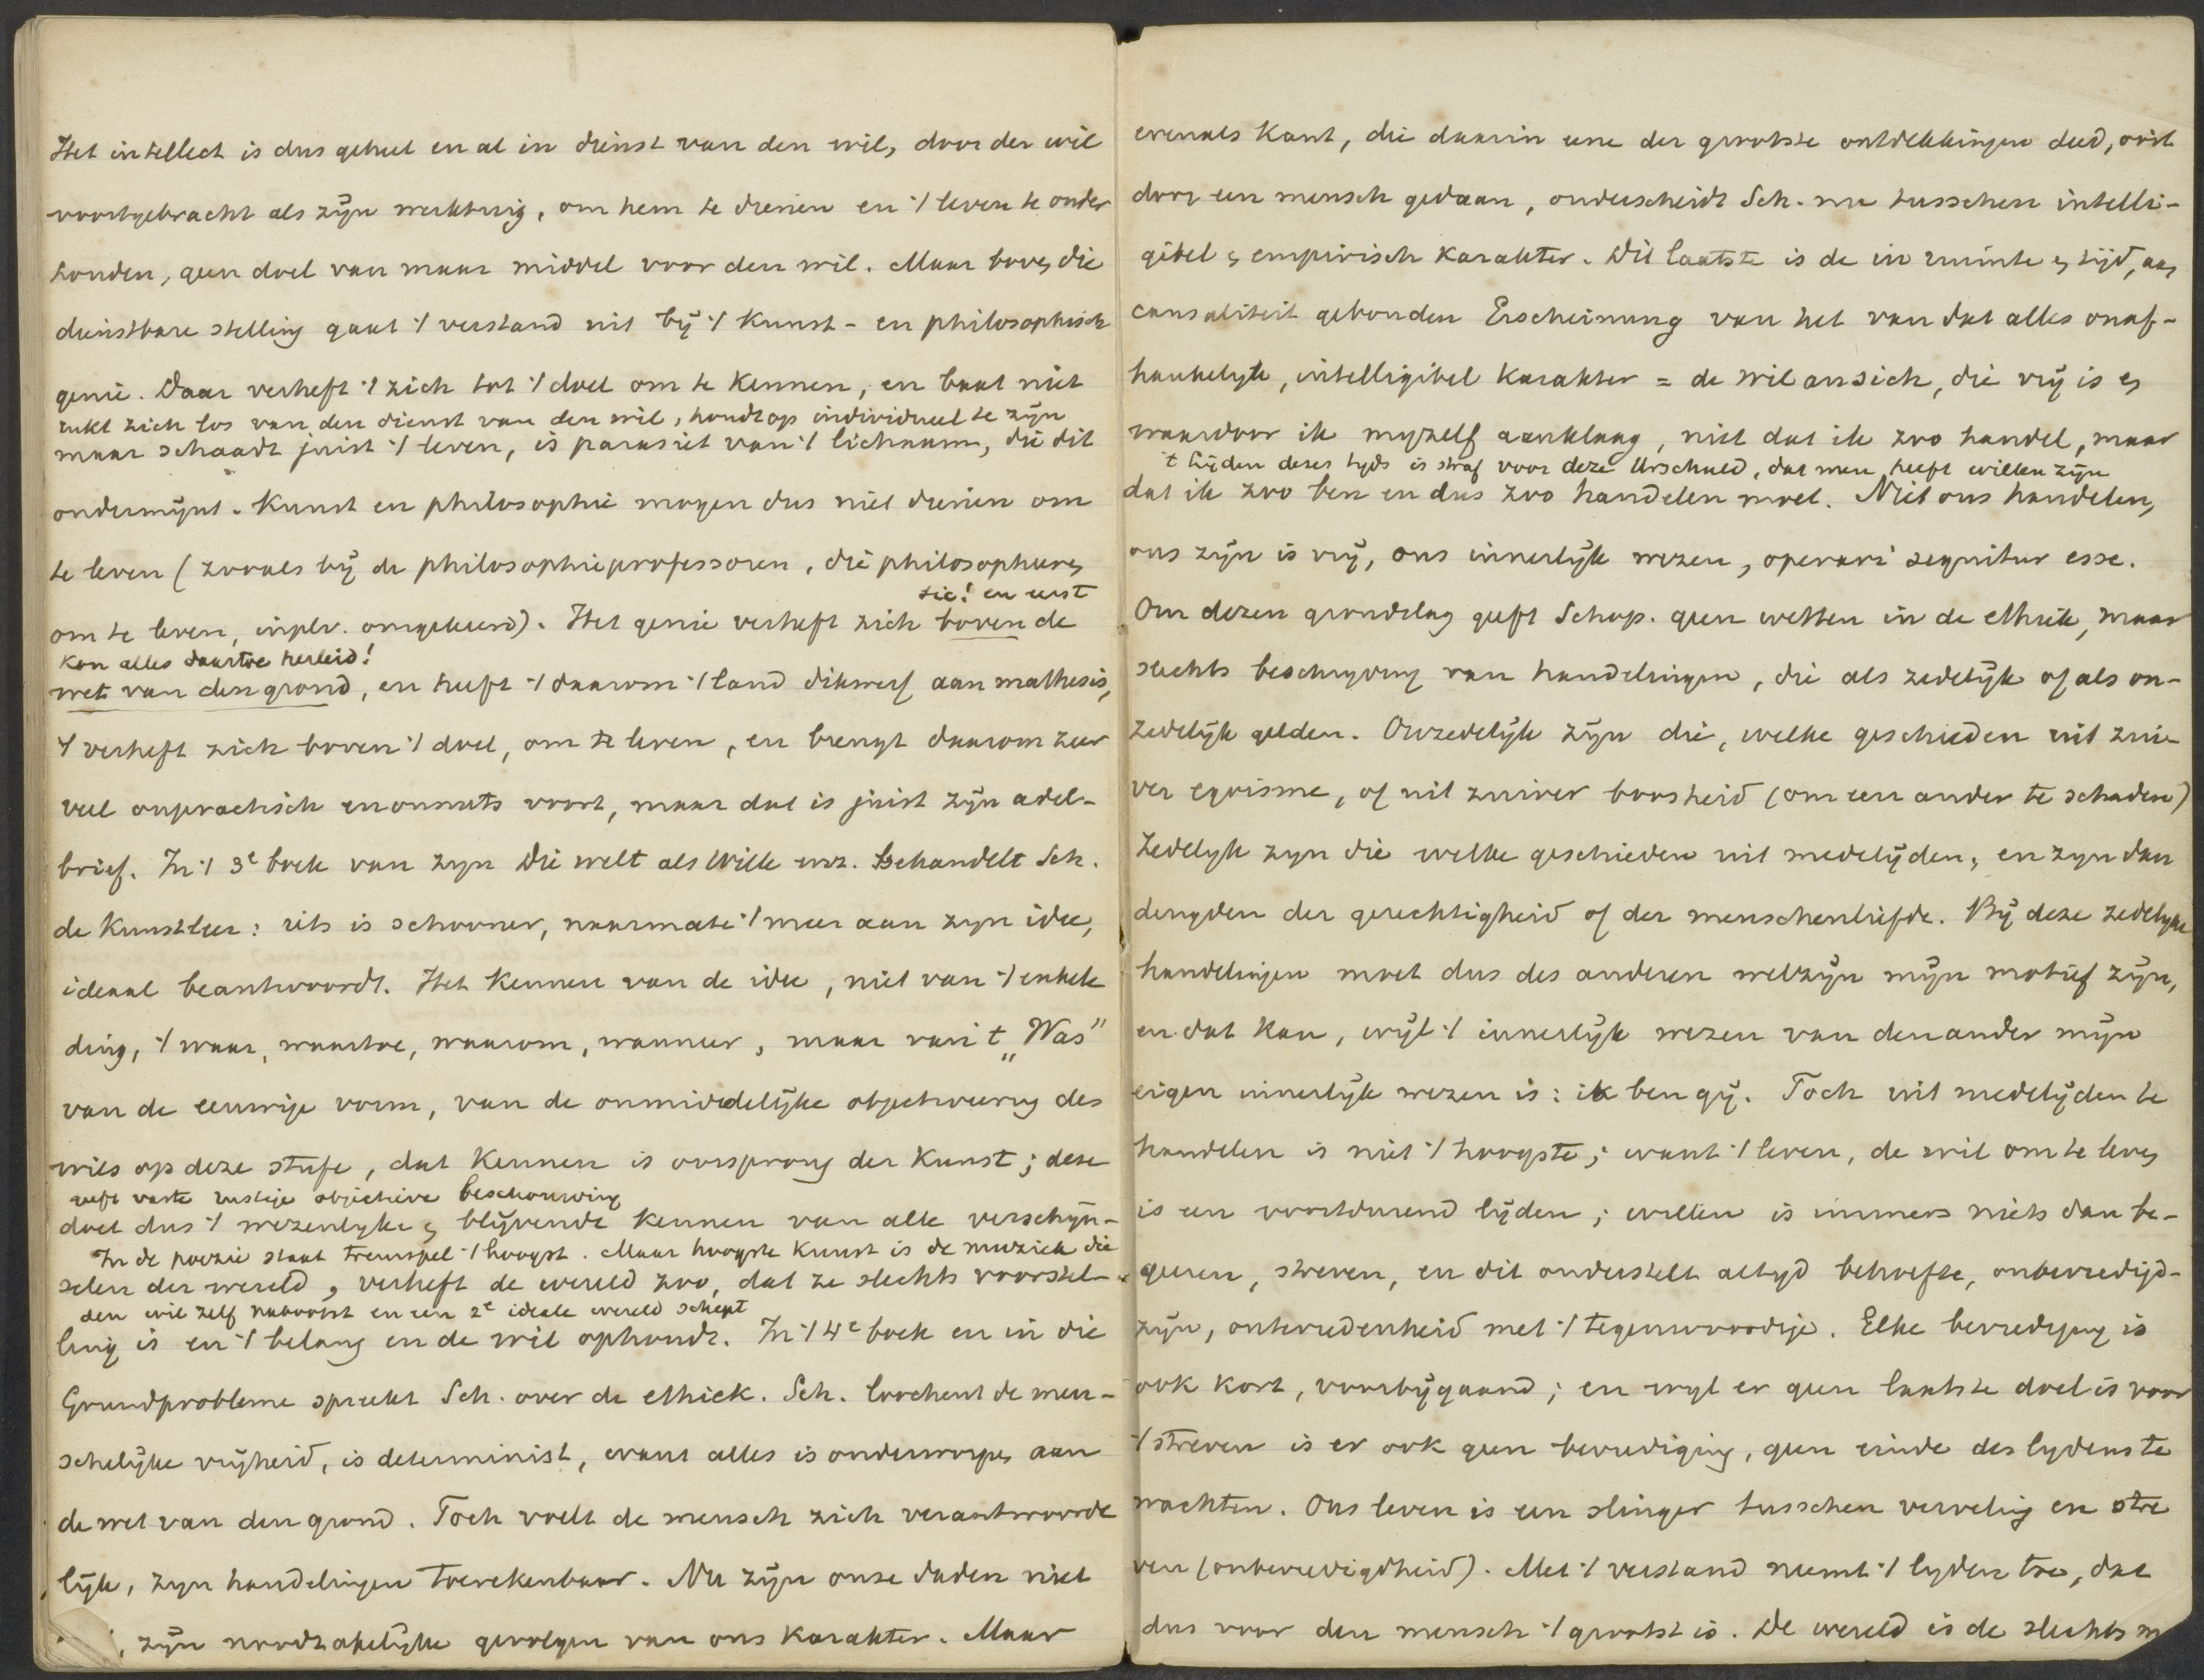 Het intellect is dus geheel en al in dienst van den wil, door den wil
voortgebracht als zijn werktuig, om hem te dienen en 't leven te onder
houden, geen doel van maar middel voor den wil. Maar boven die
dienstbare stelling gaat 't verstand uit bij 't kunst- en philosophisch
genie. Daar verheft 't zich tot 't doel om te kennen, en baat niet
rukt zich los van den dienst van den wil, houdt op individueel te zijn
maar schaadt juist 't leven, is parasiet van 't lichaam, die dit
ondermijnt. Kunst en philosophie mogen dus niet dienen om
te leven (zooals bij de philosophieprofessoren, die philosopheeren
sic! en eerst
om te leven, inplv. omgekeerd). Het genie verheft zich boven de
kan alles daartoe herleid!
wet van den grond, en heeft 't daarom 't land dikwerf aan mathesis,
't verheft zich boven 't doel, om te leven, en brengt daarom zeer
veel onpractisch en onnuts voort, maar dat is juist zijn adel-
brief. In 't 3e boek van zijn Die welt als Wille usw. behandelt Sch.
de kunstleer: iets is schooner, naarmate 't meer aan zijn idee,
ideaal beantwoordt. Het kennen van de idee, niet van 't enkele
ding, 't waar, waartoe, waarom, wanneer, maar van 't „Was”
van de eeuwige vorm, van de onmiddelijke objectveering des
wils op deze stufe, dat kennen is oorsprong der Kunst; deze
eeft vaste rustige objectieve beschouwing
doet dus 't wezenlyke en blijvende kennen van alle verschijn-
In de poezie staat treurspel 't hoogst. Maar hoogste kunst is de muziek die
selen der wereld, verheft de wereld zoo, dat ze slechts voorstel-
den wil zelf nabootst en een 2e ideale wereld schept
ling is en 't belang en de wil ophoudt. In 't 4e boek en in die
Grundprobleme spreekt Sch. over de ethiek. Sch. loochent de men-
schelijke vrijheid, is determinist, want alles is onderworpen aan
de wet van den grond. Toch voelt de mensch zich verantwoorde
lijk, zijn handelingen toerekenbaar. Nu zijn onze daden niet
, zijn noodzakelijke gevolgen van ons karakter. Maar
evenals Kant, die daarin eene der grootste ontdekkingen deed, ooit
door een mensch gedaan, onderscheidt Sch. nu tusschen intelli-
gibel en empirisch karakter. Dit laatste is de in ruimte en tijd, aan
causaliteit gebonden Erscheinung van het van dat alles onaf-
hankelyk, intelligibel karakter = de wil an sich, die vrij is en
waardoor ik myzelf aanklaag, niet dat ik zoo handel, maar
't lijden dezes tyds is straf voor deze Urschuld, dat men heeft willen zijn
dat ik zoo ben en dus zoo handelen moet. Niet ons handelen,
ons zijn is vrij, ons innerlijk wezen, operari sequitur esse.
Om dezen grondslag geeft Schop. geen wetten in de ethiek, maar
slechts beschryving van handelingen, die als zedelijk of als on-
zedelijk gelden. Onzedelijk zijn die, welke geschieden uit zuie
ver egoisme, of uit zuiver boosheid (om een ander te schaden)
Zedelyk zyn die welke geschieden uit medelijden, en zyn dan
deugden der gerechtigheid of der menschenliefde. Bij deze zedelyke
handelingen moet dus des anderen welzijn mijn motief zijn,
en dat kan, wijl 't innerlijk wezen van den ander mijn
eigen innerlijk wezen is: ik ben gij. Toch uit medelijden te
handelen is niet 't hoogste; want 't leven, de wil om te leven
is een voortdurend lijden; willen is immers niets dan be-
geeren, streven, en dit onderstelt altyd behoefte, onbevredigd-
zijn, ontevredenheid met 't tegenwoordige. Elke bevrediging is
ook kort, voorbijgaand; en wyl er geen laatste doel is voor
't streven is er ook geen bevrediging, geen einde des lydens te
wachten. Ons leven is een slinger tusschen verveling en stre
ven (onbevredigdheid). Met 't verstand neemt 't lyden toe, dat
dus voor den mensch 't grootst is. De wereld is de slechts m